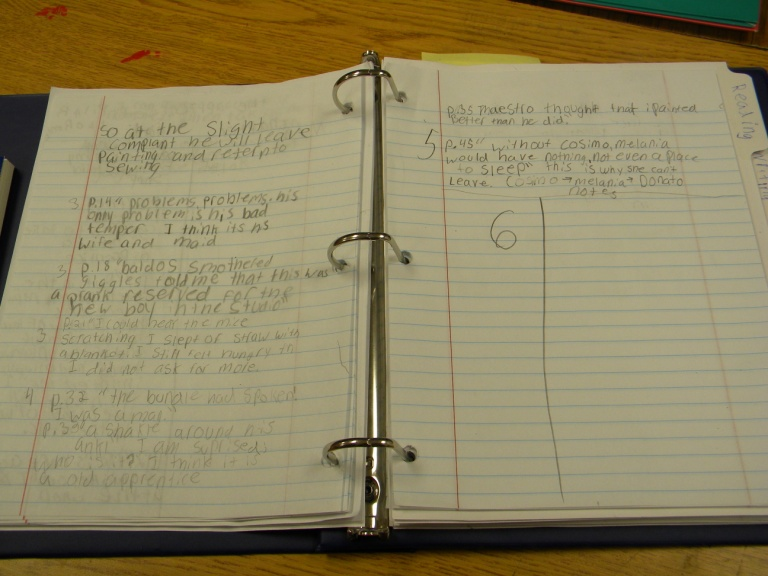 so at the slight
complant he will leave
painting and reterp to
sewing
3 p.14 " problems, problems, his
only problem is his bad
temper I think its his
wife and maid
3 p.18 "baldos smothered
giggles told me that this was
a prank reserved for the
new boy in the studio"
3 p.21 "I could hear the mice
scratching I slept of straw with
a blanket. I still felt hungry th
I did not ask for more.
4 p.32 "the bundle had spoken!
I was a man"
p.33 "a shakle around his
ankl" I am suprised;
who is it? I think it is
a old apprentice
p.35 maestro thought that i painted
better than he did.
5 p.45" without cosimo, melania
would have nothing, not even a place
to sleep" this is why she cant
leave. Cosimo → melania → Donato
notes
6
Reading